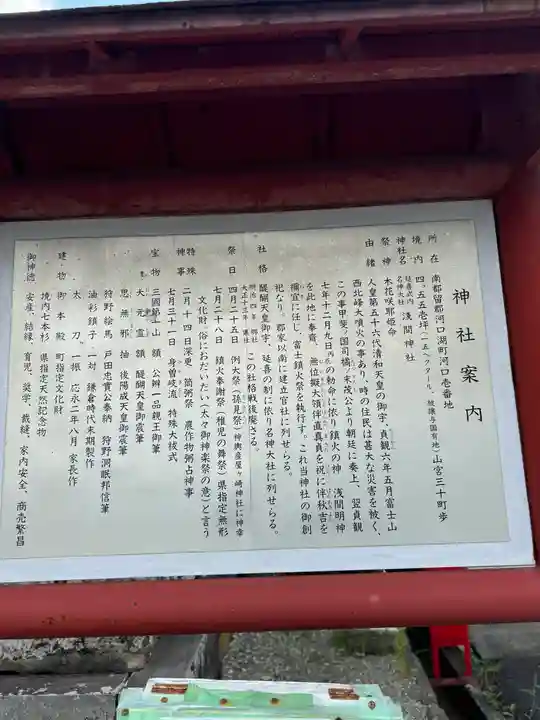 神社案内
所在 南都留郡河口湖町河口壱番地
境内 四、五五壱坪(一五ヘクタール) 被譲与国有地 山宮三十町歩
神社名 延喜式内名神大社 浅間神社
祭神 木花咲耶姫命
由緒 人皇第五十六代清和天皇の御宇、貞観六年五月富士山
西北峰大噴火の事あり、時の住民は甚大な災害を被く、
この事甲斐ノ国司橘ノ末茂公より朝廷に奏上、翌貞観
七年十二月九日丙辰の勅命に依り鎮火の神 浅間明神
を此地に奉斎、無位擬大領伴直真貞を祝に伴秋吉を
禰宜に任じ、富士鎮火祭を執行す。これ当神社の御創
祀なり。郡家以南に建立官社に列せらる。
社格 醍醐天皇御宇、延喜の制に依り名神大社に列せらる。
大正十三年 縣社 この社格戦後廃さる。
祭日 四月二十五日 例大祭(孫見祭)神輿産屋ヶ崎神社に神幸
七月二十八日 鎮火奉謝祭(稚児の舞祭)県指定無形
文化財、俗におだいだい(太々御神楽祭の意)と言う
特殊神事 二月十四日深更 筒粥祭 農作物粥占神事
七月三十一日 身曽岐流 特殊大祓式
宝物 三國第一山 額 公辨一品親王御筆
大元霊 額 醍醐天皇御宸筆
思無邪 抽 後陽成天皇御宸筆
狩野絵馬 戸田忠貴公奉納 狩野洞眠邦信筆
油彩鎖子 一対 鎌倉時代末期製作
太刀 一振 応永二年八月 家長作
建物 御本殿 町指定文化財
境内七本杉 県指定天然記念物
御神徳 安産、結縁、育児、奨学、裁縫、家内安全、商売繁昌